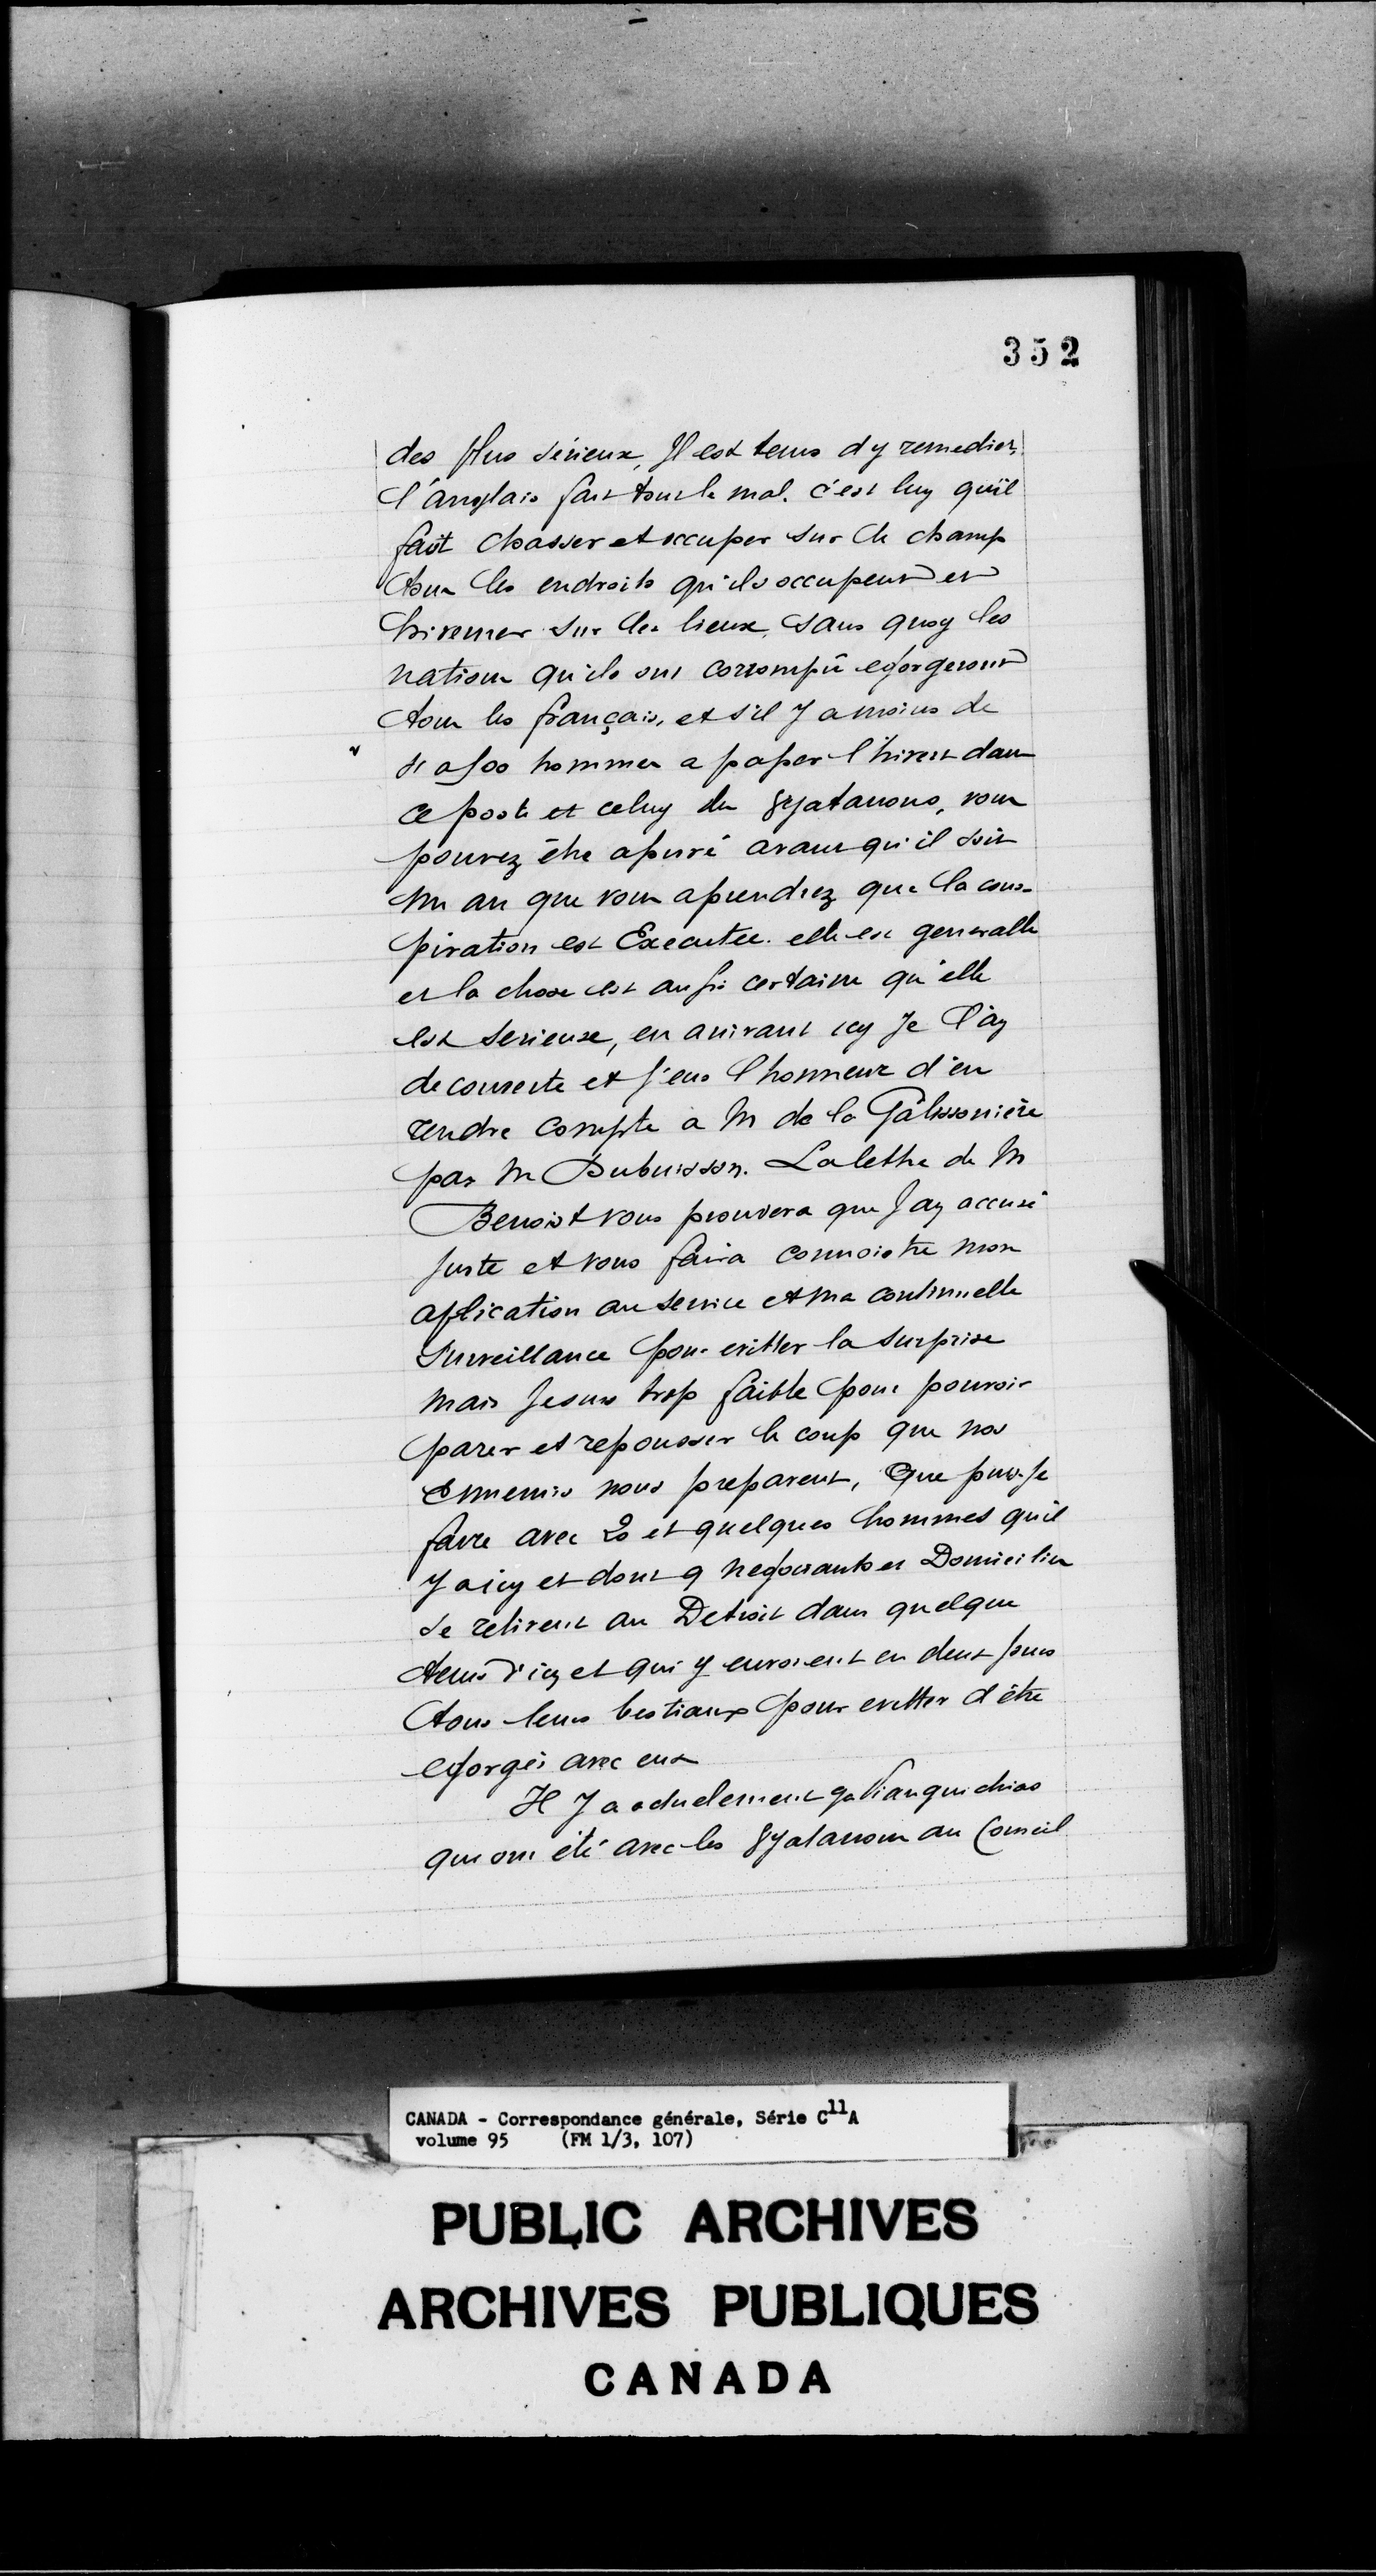 352
des plus sérieux, Il est tems d'y remedier,
l'anglais fait tout le mal. c'est luy qu'il
faut chasser et occuper sur le champ
tous les endroits qu'ils occupent et
hiverner sur les lieux, sans quoy les
nations qu'ils ont corrompû egorgeront
tous les français, et s'il y a moins de
500 hommes a passer l'hivert dans
ce poste et celuy des 8yatanons, vous
pouvez être assuré avant qu'il soit
un an que vous aprendrez que la cons-
piration est Executée. elle est generalle
et la chose est aussi certaine qu'elle
est serieuse, en arivant icy Je l'ay
decouverte et J'eus l'honneur d'en
rendre compte a M de la Galissonière
par M Dubuisson. La lettre de M
Benoist vous prouvera que J'ay accusé
Juste et vous faira connoistre mon
aplication au service et ma continuelle
surveillance pour evitter la surprise
mais Je suis trop faible pour pouvoir
parer et repousser le coup que nos
Ennemis nous preparent, Que puis-Je
faire avec 20 et quelques hommes qu'il
y a icy et dont 9 negotiants et Domiciliés
se retirent au Detroit dans quelque
tems d'icy et qui y envoient en deux jours
tous leurs bestiaux pour evitter d'être
egorgés avec eux
Il y a actuelement 92 Pianguichias
qui ont été avec les 8yatanons au Conseil
CANADA - Correspondance générale, Série C11A
volume 95 (FM 1/3, 107)
PUBLIC ARCHIVES
ARCHIVES PUBLIQUES
CANADA